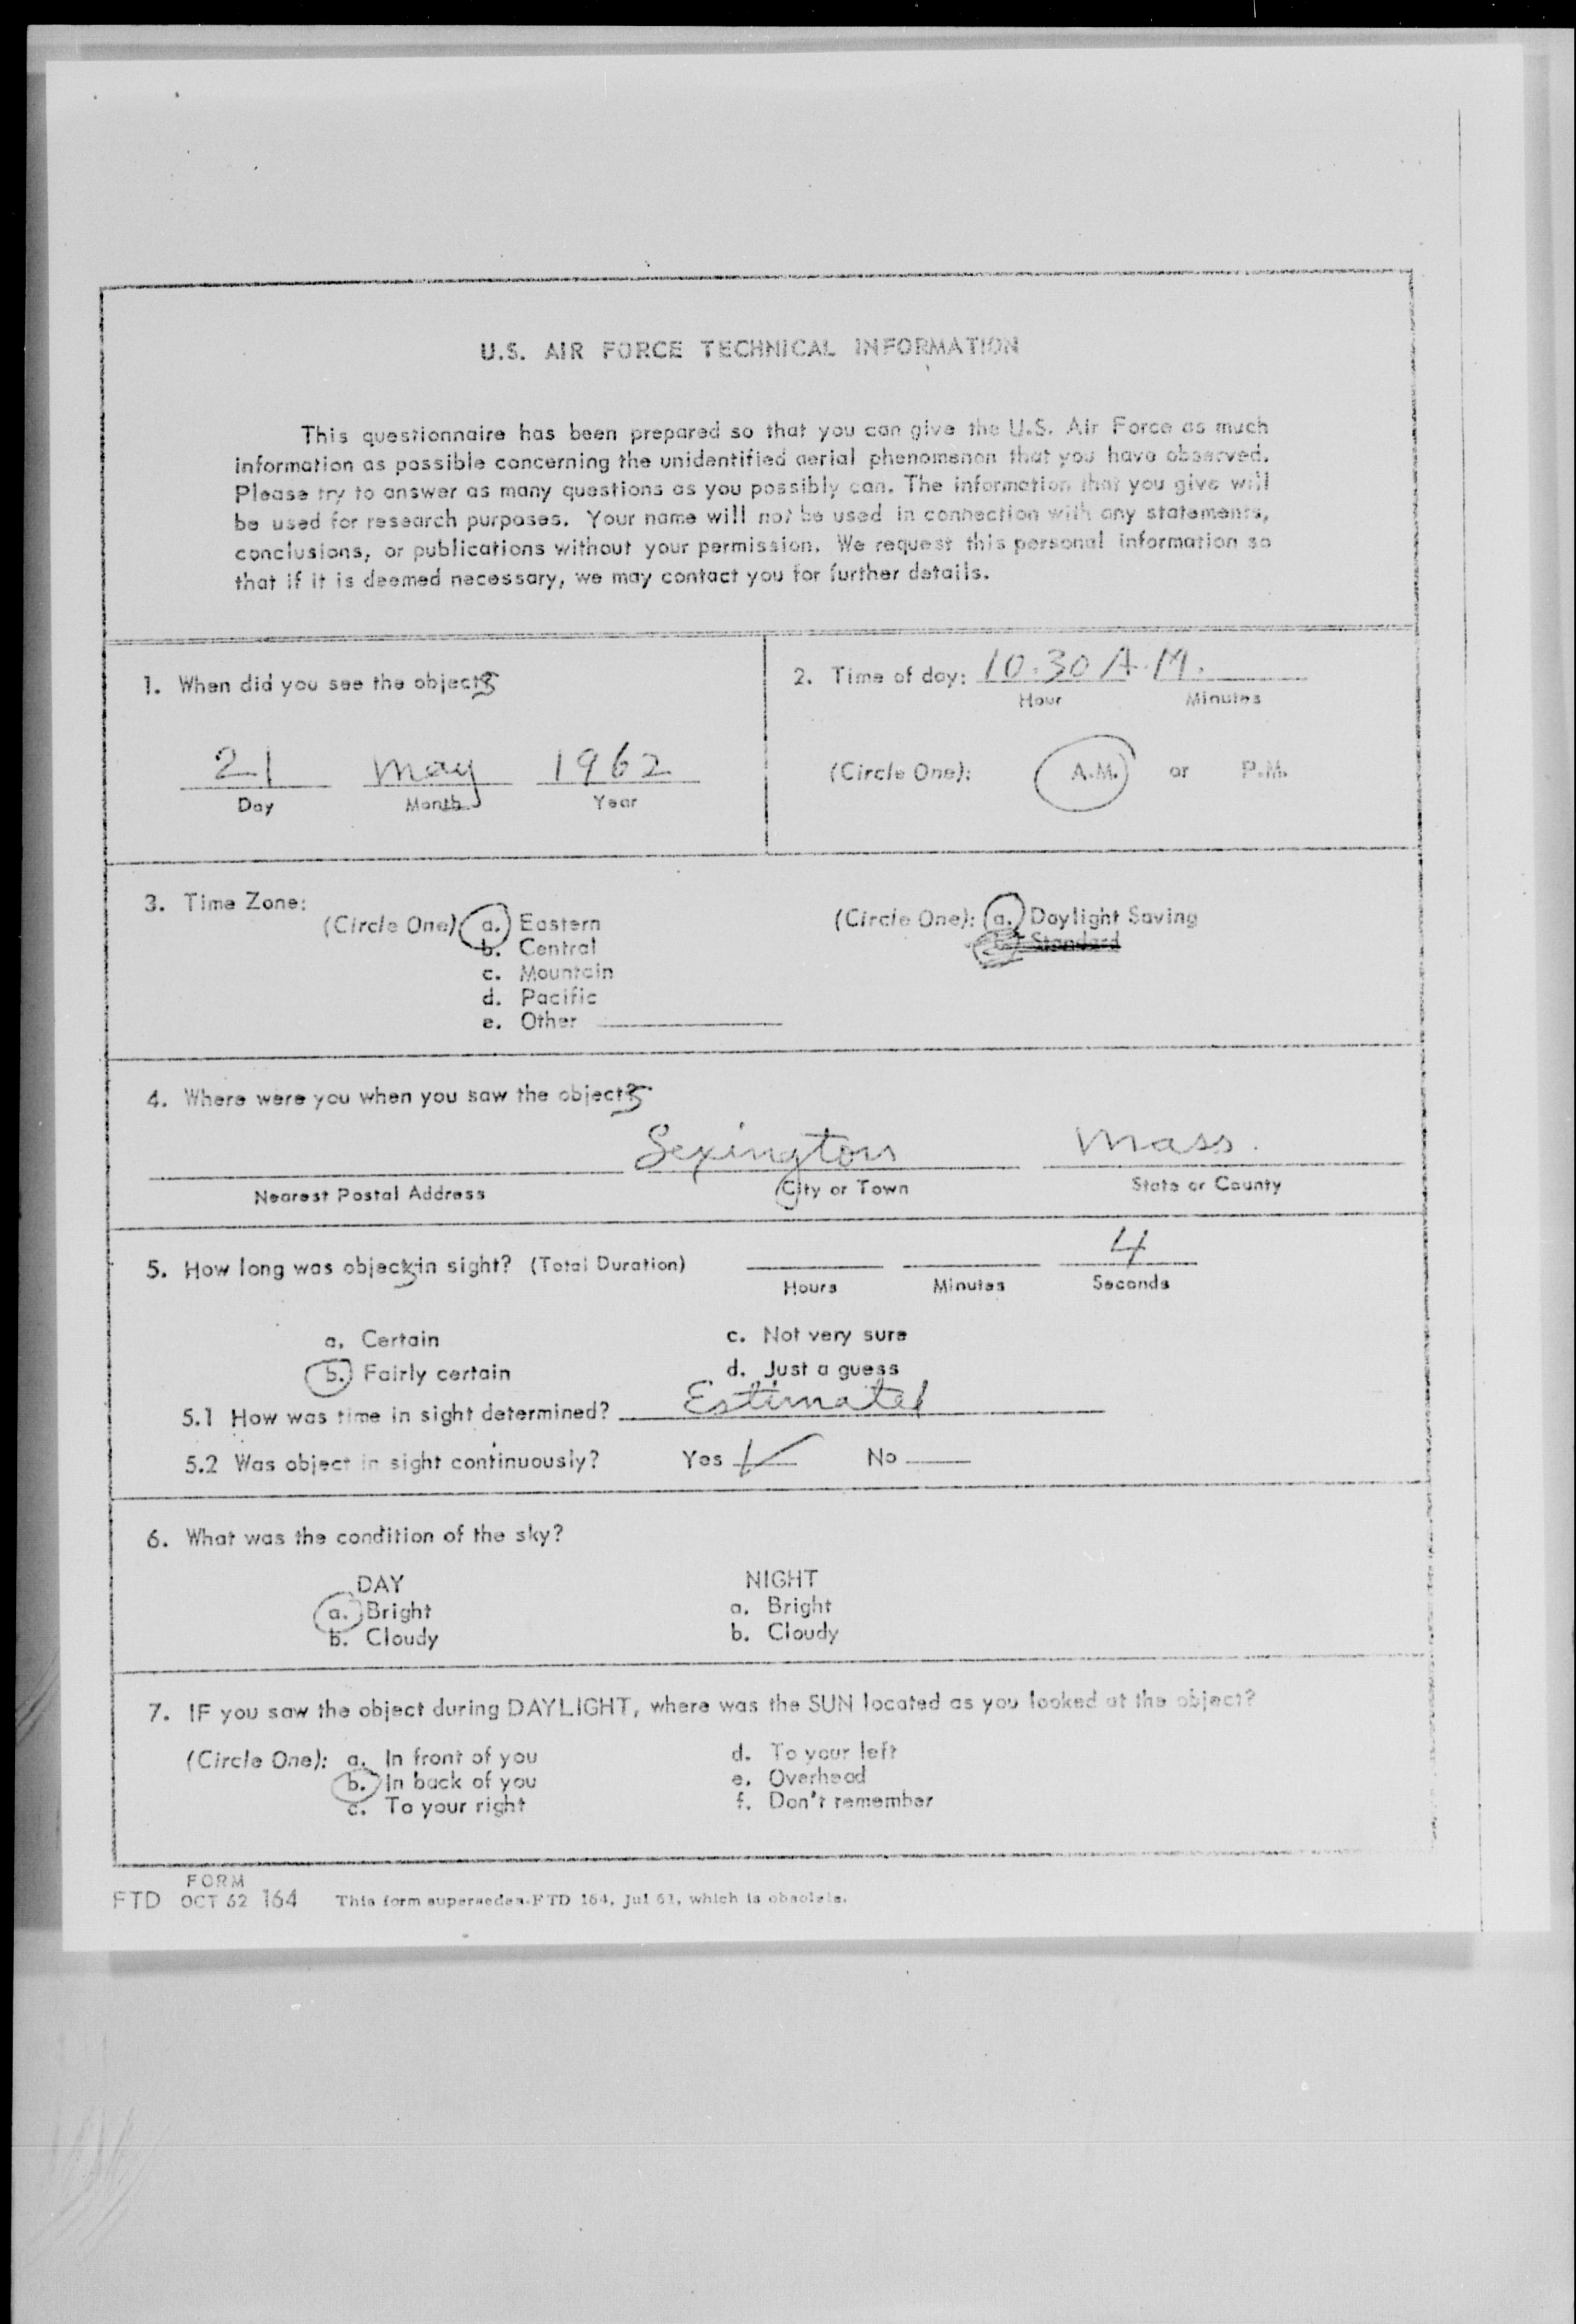 U.S. AIR FORCE TECHNICAL INFORMATION
This questionnaire has been prepared so that you can give the U.S. Air Force as much
information as possible concerning the unidentified aerial phenomenon that you have observed.
Please try to answer as many questions as you possibly can. The information that you give will
be used for research purposes. Your name will not be used in connection with any statements,
conclusions, or publications without your permission. We request this personal information so
that if it is deemed necessary, we may contact you for further details.
1. When did you see the objects
21 May 1962
Day Month Year
2. Time of day: 10:30 A.M.
Hour Minutes
(Circle One): A.M. or P.M.
3. Time Zone:
(Circle One) a. Eastern
b. Central
c. Mountain
d. Pacific
e. Other
(Circle One): a. Daylight Saving
b. Standard
4. Where were you when you saw the objects
Lexington Mass.
Nearest Postal Address City or Town State or County
5. How long was objects in sight? (Total Duration) 4
Hours Minutes Seconds
a. Certain c. Not very sure
b. Fairly certain d. Just a guess
5.1 How was time in sight determined? Estimated
5.2 Was object in sight continuously? Yes ✓ No
6. What was the condition of the sky?
DAY NIGHT
a. Bright a. Bright
b. Cloudy b. Cloudy
7. IF you saw the object during DAYLIGHT, where was the SUN located as you looked at the object?
(Circle One): a. In front of you d. To your left
b. In back of you e. Overhead
c. To your right f. Don't remember
FORM
FTD OCT 62 164 This form supersedes FTD 164, Jul 61, which is obsolete.